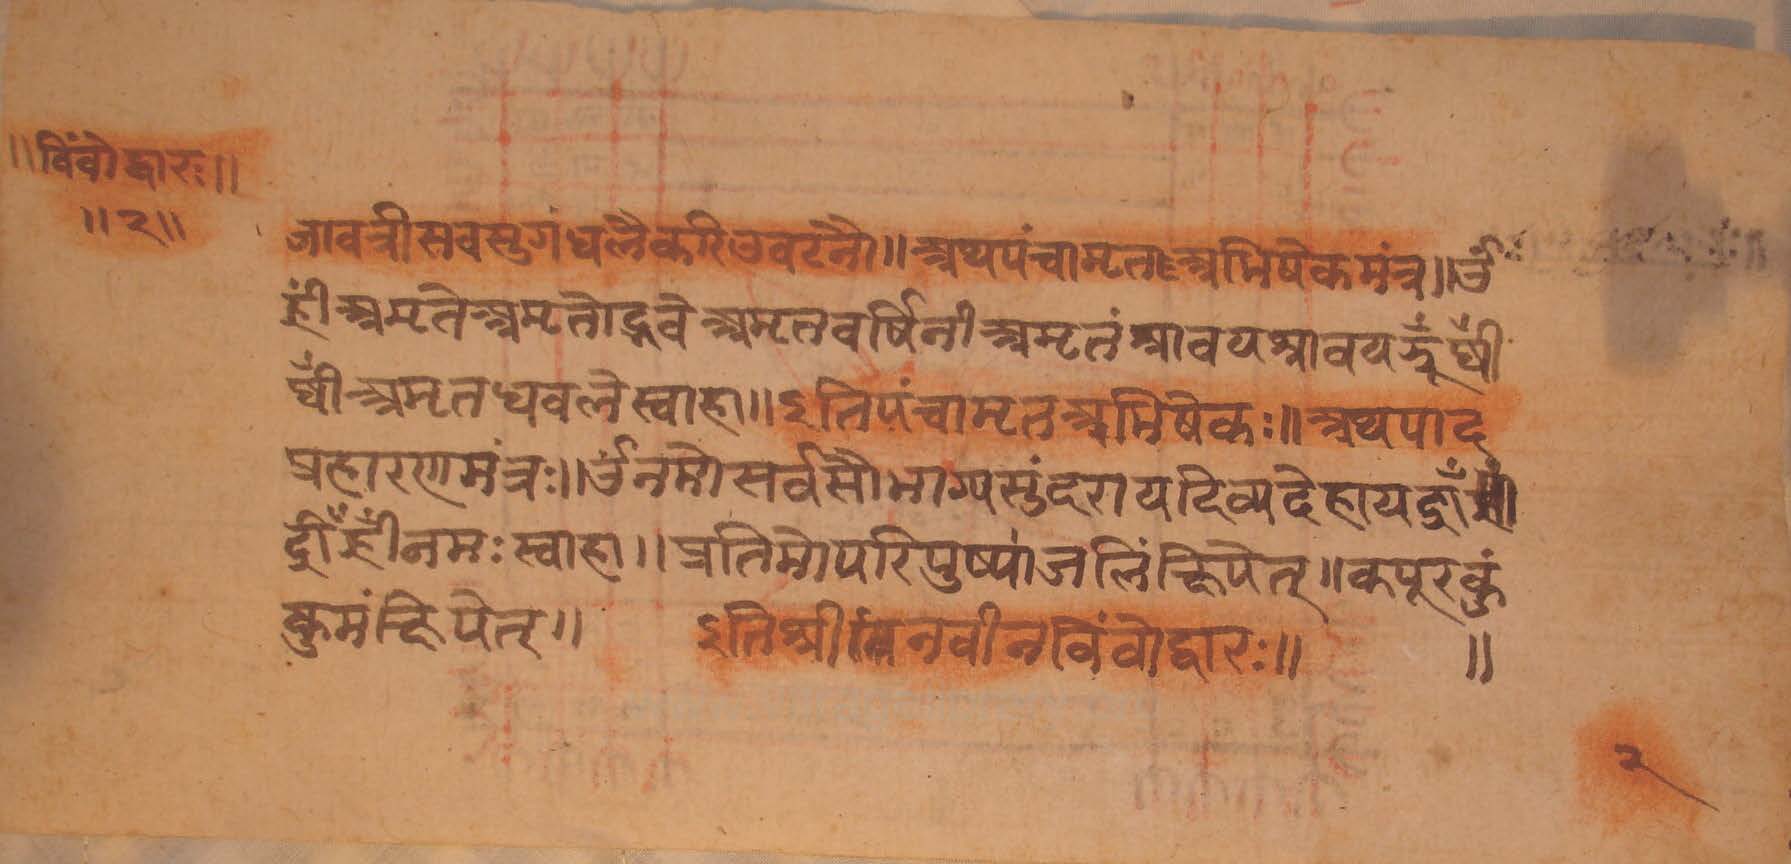 ॥विंवोद्धारः॥
॥२॥
जावत्रीसवसुगंधलैकरिउवटनौ॥अथपंचामृतअभिषेकमंत्र॥ॐ
ह्रीँअमृतेअमृतोद्भवेअमृतवर्षिनीअमृतंश्रावयश्रावय
अमृतधवलेस्वाहा॥इतिपंचामृतअभिषेकः॥अथपाद
प्रहारणमंत्रः॥ॐनमोसर्वसौभाग्यसुंदरायदिव्यदेहाय
ह्रीँनमःस्वाहा॥प्रतिमोपरिपुष्पांजलिंक्षिपेत्॥कपूरकुं
कुमंक्षिपेत्॥ इतिश्रीनवीनविंवोद्धारः॥ ॥
२